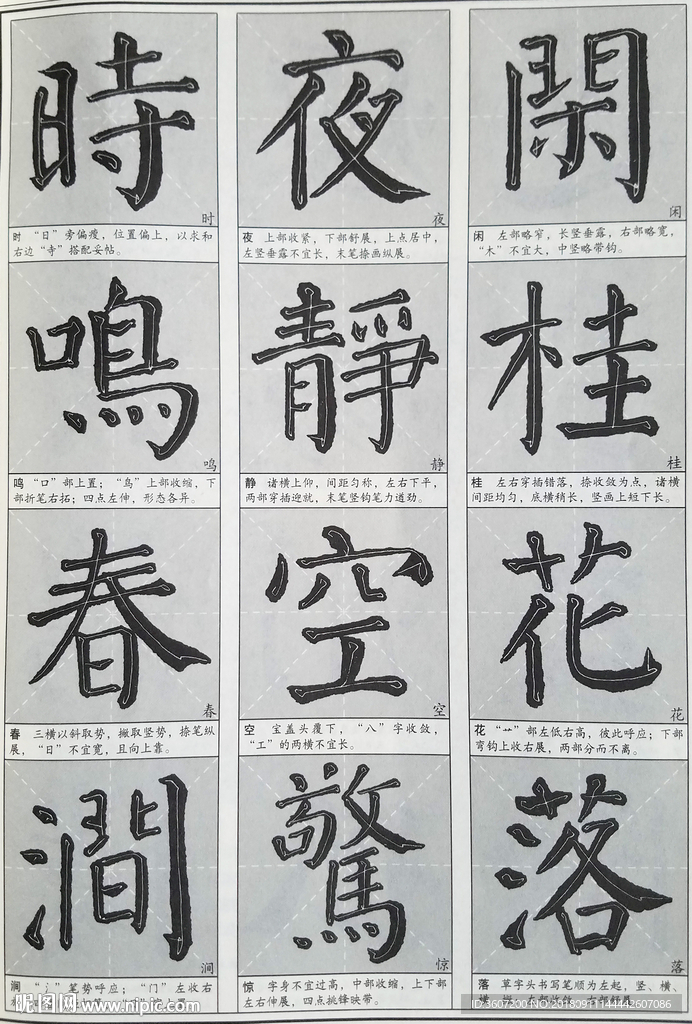 時
夜
閑
时
夜
闲
时 “日”旁偏瘦，位置偏上，以求和
右边“寺”搭配妥帖。
夜 上部收紧，下部舒展，上点居中，
左竖垂露不宜长，末笔捺画纵展。
闲 左部略窄，长竖垂露，右部略宽，
“木”不宜大，中竖略带钩。
鳴
靜
桂
鸣
静
桂
鸣 “口”部上置；“鸟”上部收缩，下
部折笔右拓；四点左伸，形态各异。
静 诸横上仰，间距匀称，左右下平，
两部穿插迎就，末笔竖钩笔力遒劲。
桂 左右穿插错落，捺收敛为点，诸横
间距均匀，底横稍长，竖画上短下长。
春
空
花
春
空
花
春 三横以斜取势，撇取竖势，捺笔纵
展，“日”不宜宽，且向上靠。
空 宝盖头覆下，“八”字收敛，
“工”的两横不宜长。
花 “艹”部左低右高，彼此呼应；下部
弯钩上收右展，两部分而不离。
澗
驚
落
涧
惊
落
涧 “氵”笔势呼应；“门”左收右
惊 字身不宜过高，中部收缩，上下部
左右伸展，四点挑锋映带。
落 草字头书写笔顺为左起，竖、横、
昵图网 www.nipic.com
ID:3607200 NO:20180911144442607086